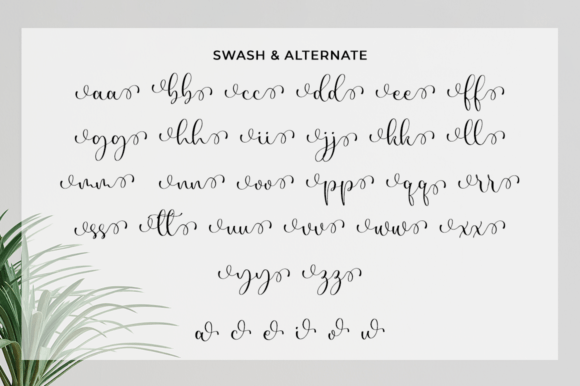 SWASH & ALTERNATE
aa bb cc dd ee ff
gg hh ii jj kk ll
mm nn oo pp qq rr
ss tt uu vv ww xx
yy zz
a c e i o u